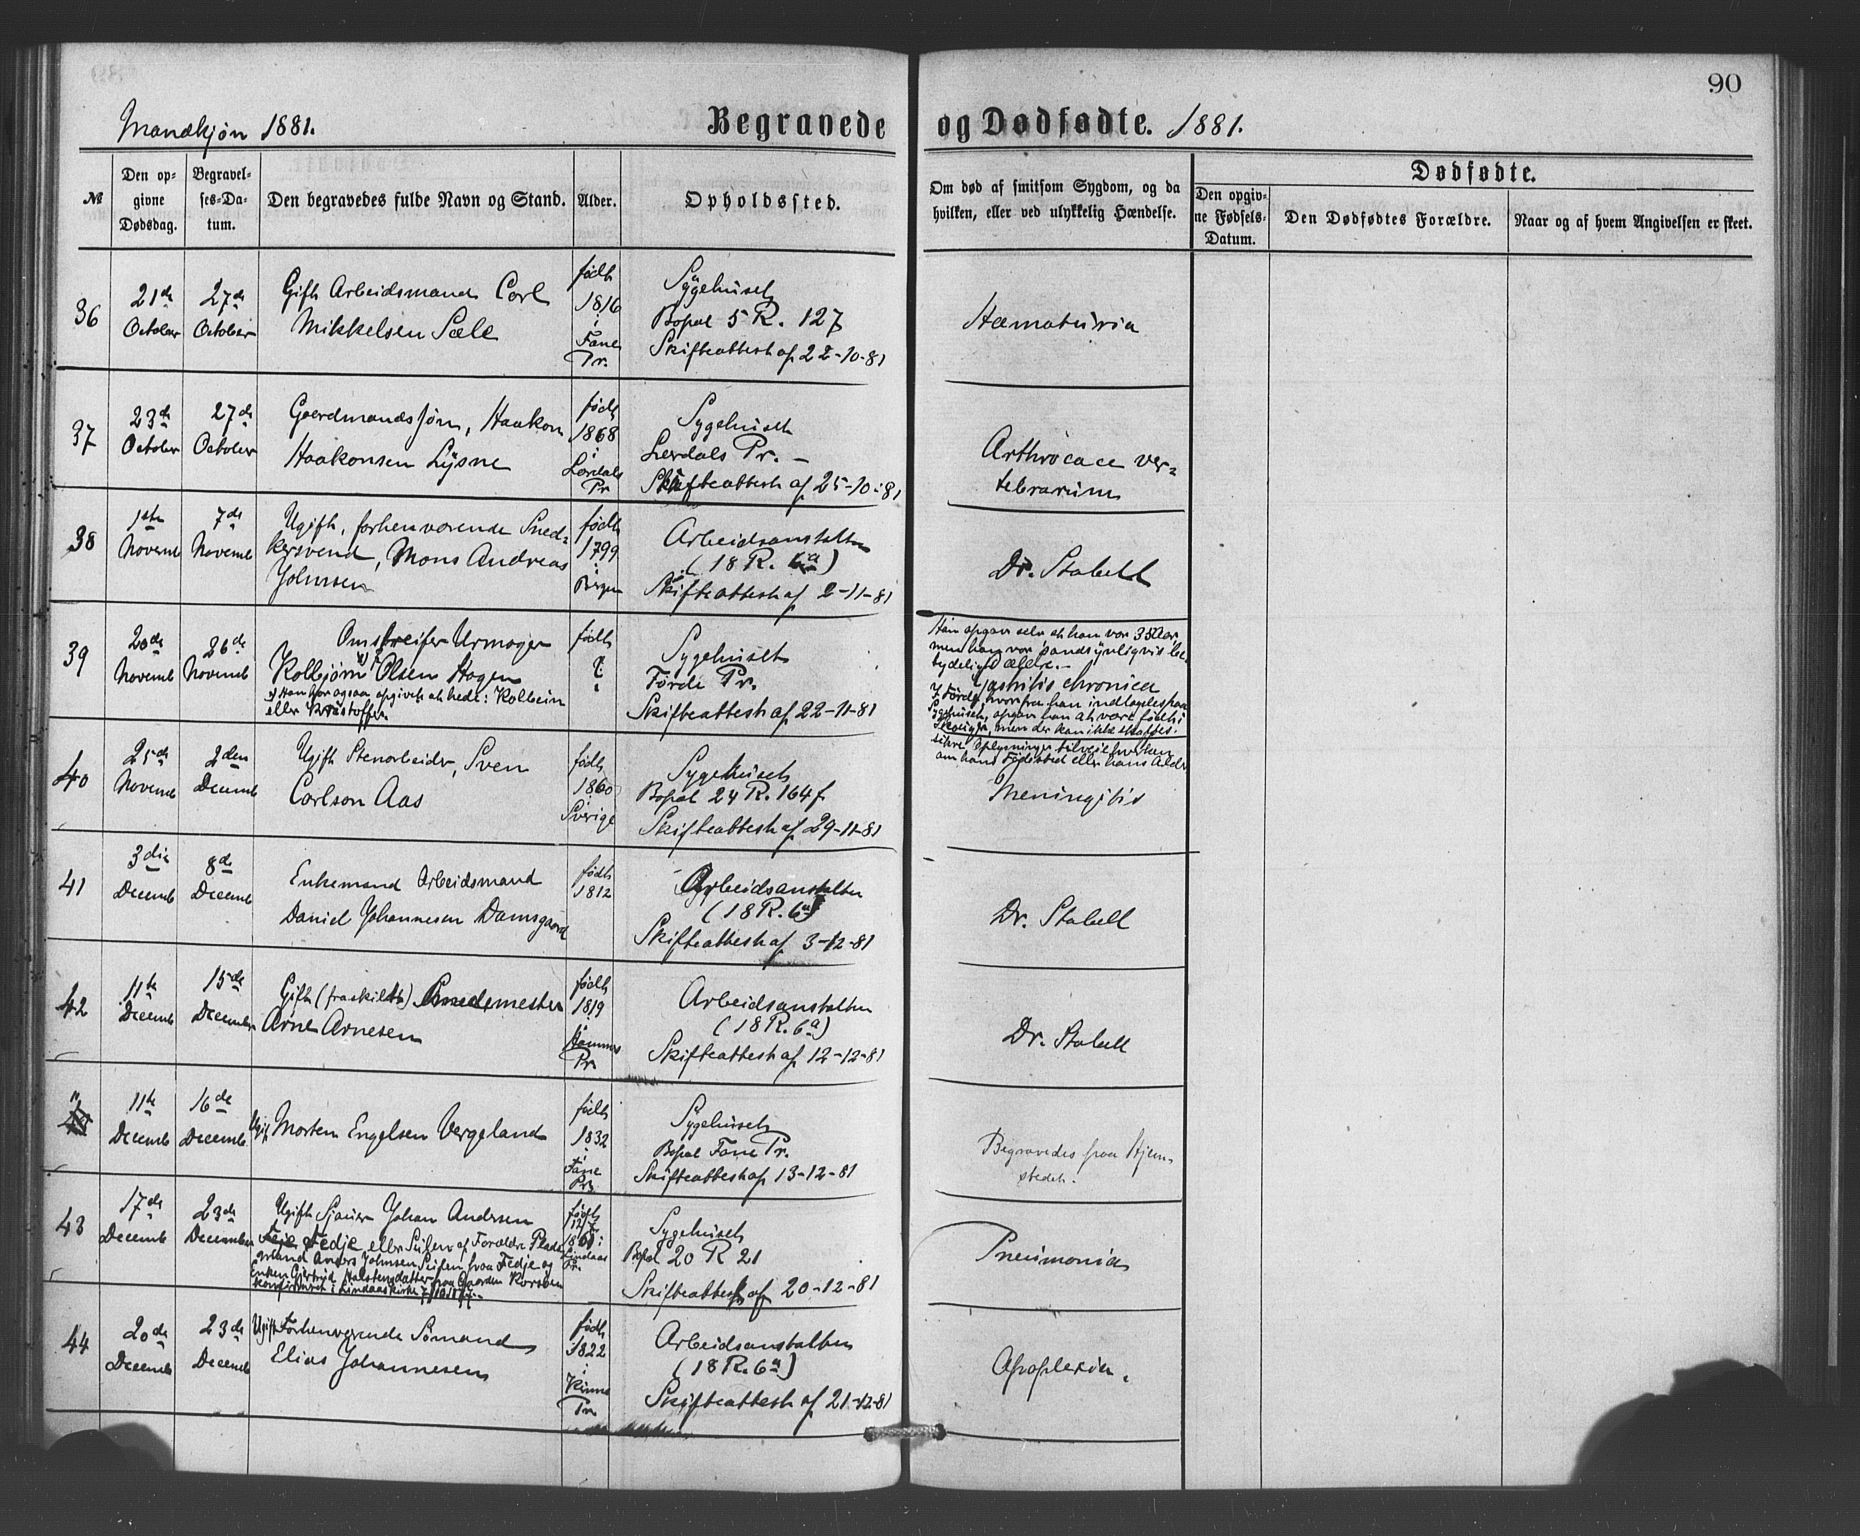 90
Mandkjøn 1881.
Begravede og Dødfødte. 1881.
№
Den op-
givne
Dødsdag.
Begravel-
ses-Da-
tum.
Den begravedes fulde Navn og Stand.
Alder.
Opholdssted.
Om død af smitsom Sygdom, og da
hvilken, eller ved ulykkelig Hændelse.
Dødfødte.
Den opgiv-
ne Fødsels-
Datum.
Den Dødfødtes Forældre.
Naar og af hvem Angivelsen er skeet.
36
21de
October
27de
October
Gift Arbeidsmand Carl
Mikkelsen Sæle
født
1816
i
Fane
Pr.
Sygehuset
Bopæl 5 R. 127
Skifteattest af 22-10-81
Hæmaturia
37
23de
October
27de
October
Gaardmandssøn, Haakon
Haakonsen Lysne
født
1868
i
Lærdals
Pr
Sygehuset
Lerdals Pr. –
Skifteattest af 25-10-81
Arthrocace ver-
tebrarum
38
1ste
Novemb
7de
Novemb
Ugift, forhenværende Sned-
kersvend, Mons Andreas
Johnsen
født
1799
i
Bergen
Arbeidsanstalten
(18 R. 6a)
Skifteattest af 2-11-81
Dr. Stabell
39
20de
Novemb
26de
Novemb
Omstreifer Urmager
Kolbjørn Olsen Hagen
Han har ogsaa opgivet at hede: Kolbein
eller Kristoffer
født
?
Sygehuset
Førde Pr.
Skifteattest af 22-11-81
Han opgav selv at han var 35 Aar,
men han var sandsynligvis be-
tydelig ældre. –
Gastritis chronica
I Førde, hvorfra han indlagdes paa
Sygehuset, opgav han at være født i
men der kan ikke skaffes
sikre Oplysninger tilveie hverken
om hans Fødested eller hans Alder
40
25de
Novemb
2den
Decemb
Ugift Stenarbeider, Sven
Carlson Aas
født
1860
Sverige
Sygehuset
Bopæl 24 R. 164f
Skifteattest af 29-11-81
Meningitis
41
3die
Decemb
8de
Decemb
Enkemand Arbeidsmand
Daniel Johannesen Damsgaard
født
1812
Arbeidsanstalten
(18 R. 6a)
Skifteattest af 3-12-81
Dr. Stabell
42
11te
Decemb
15de
Decemb
Gift (fraskilt) Smedemester
Arne Arnesen
født
1819
i
Hammer
Pr
Arbeidsanstalten
(18 R. 6a)
Skifteattest af 12-12-81
Dr. Stabell
"
11te
Decemb
16de
Decemb
Ugift Morten Engelsen Vergeland
født
1832
i
Fane
Pr
Sygehuset
Bopæl Fane Pr.
Skifteattest af 13-12-81
Begravedes fra Hjem-
stedet.
43
17de
Decemb
23de
December
Ugift Sjauer Johan Andersen
Fedje eller Seifen af Forældre Plads-
mand Anders Johnsen Seifen fra Fedje og
Enken Gjertrud Halstensdatter fra Gaarden
Konfirmeret i Lindaas Kirke
født
12/7
i
Lindaas
Pr.
Sygehuset
Bopæl 20 R 21
Skifteattest af 20-12-81
Pneumonia
44
20de
Decemb
23de
Decemb
Ugift Forhenværende Sømand
Elias Johannesen
født
1822
i
Kinns
Pr.
Arbeidsanstalten
(18 R. 6a)
Skifteattest af 21-12-81
Apoplexia.